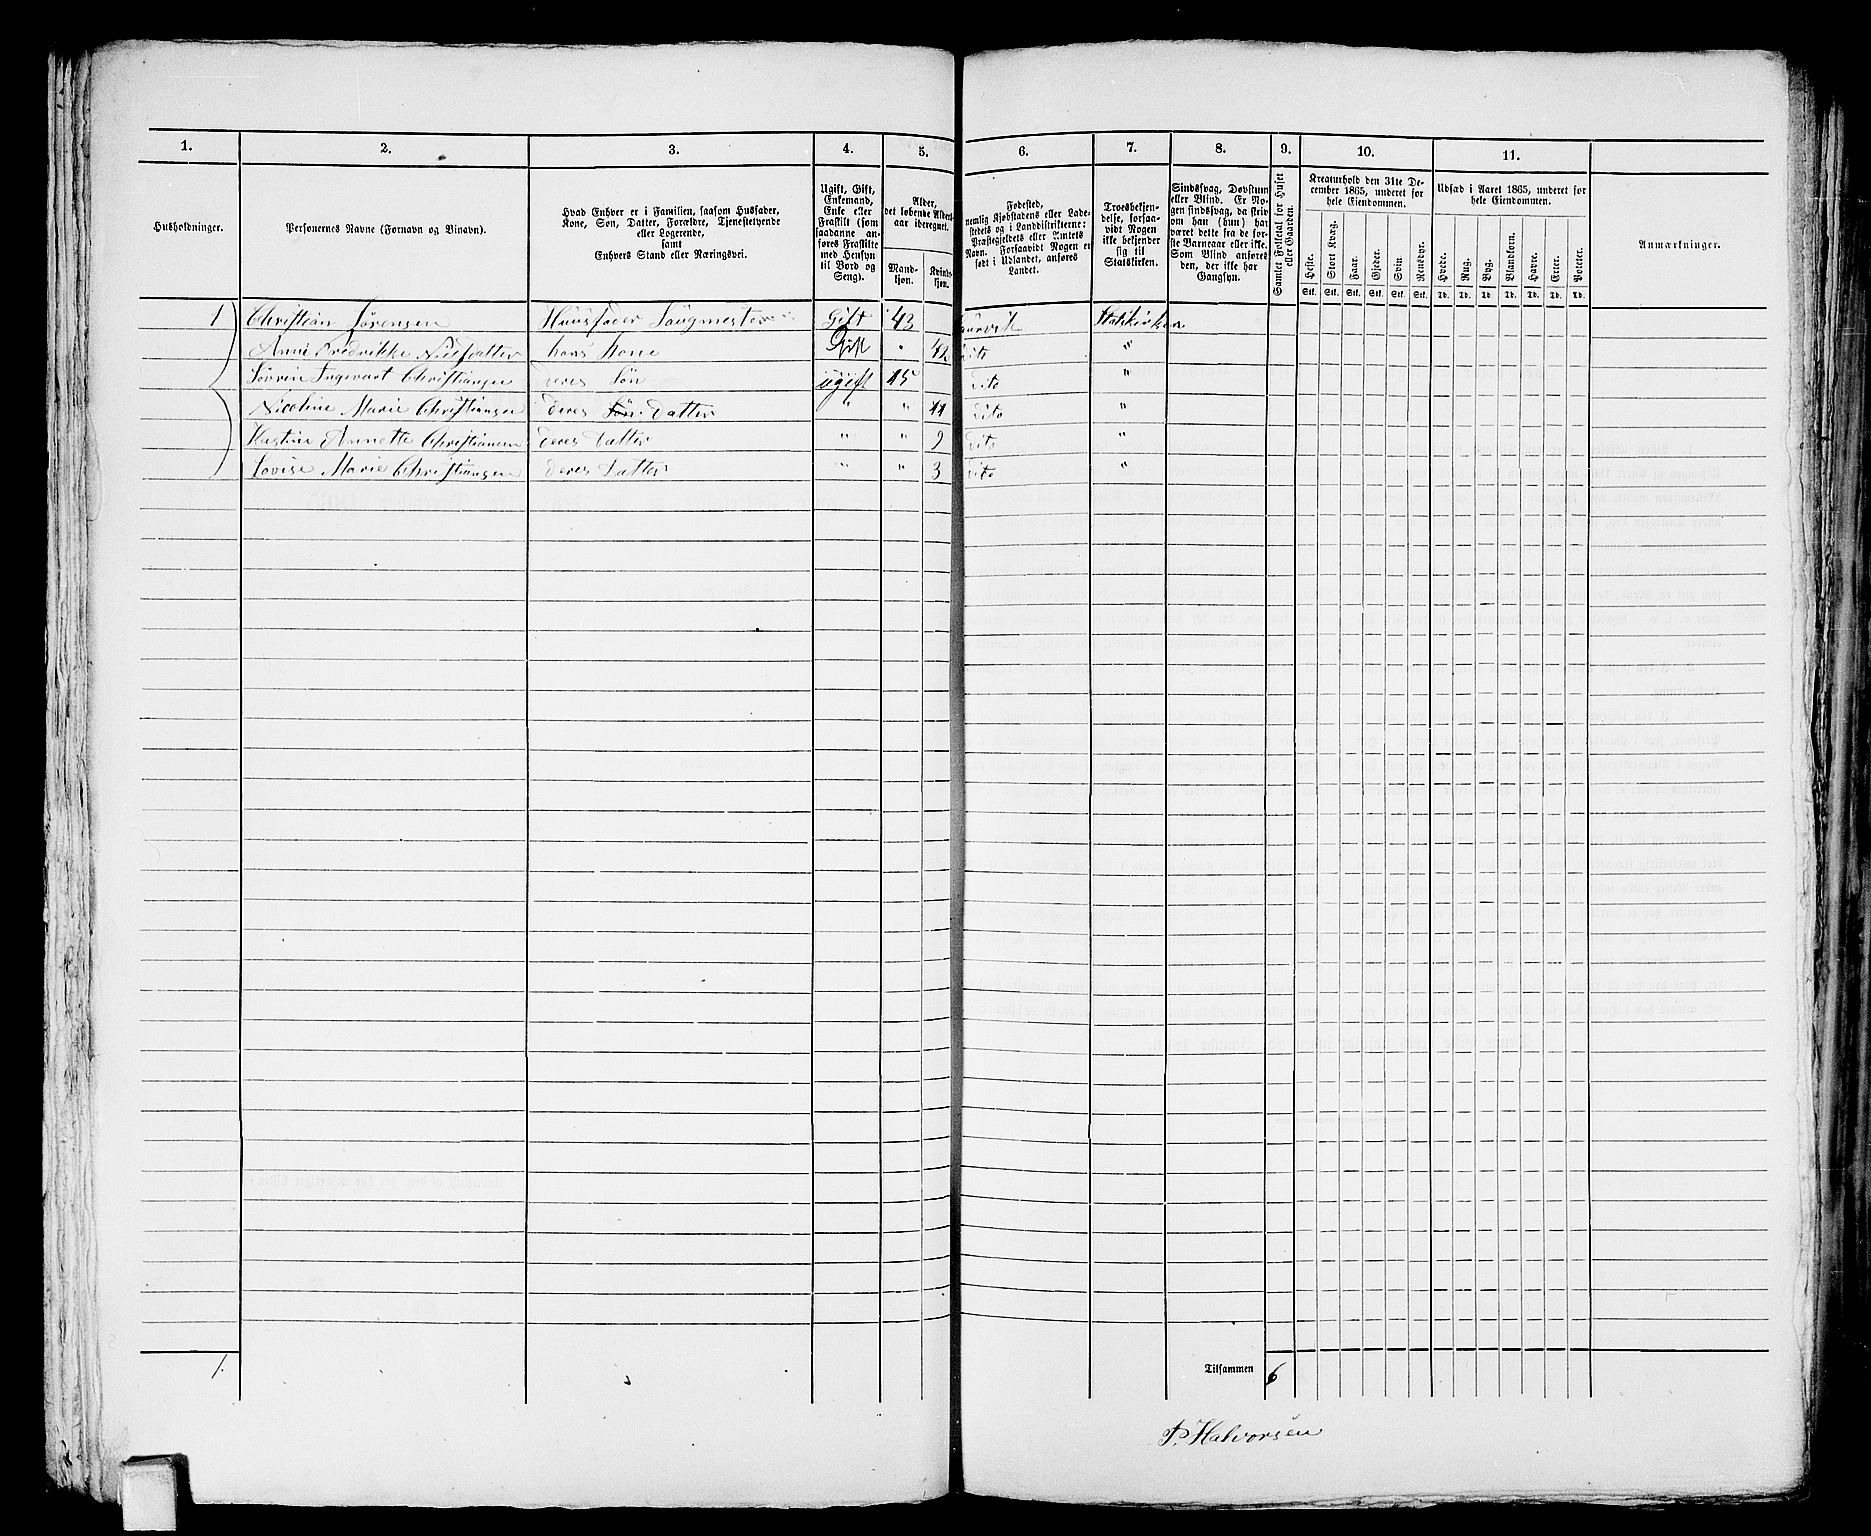 1. 2. 3. 4. 5. 6. 7. 8. 9. 10. 11.
Husholdninger.
Personernes Navne (Fornavn og Binavn).
Hvad Enhver er i Familien, saasom Husfader,
Kone, Søn, Datter, Forældre, Tjenestetyende
eller Logerende,
samt
Enhvers Stand eller Næringsvei.
Ugift, Gift,
Enkemand,
Enke eller
Fraskilt (som
saadanne an-
føres Fraskilte
med Hensyn
til Bord og
Seng).
Alder,
det løbende Alders-
aar iberegnet.
Mand-
kjøn.
Kvind-
kjøn.
Fødested,
nemlig Kjøbstadens eller Lade-
stedets og i Landdistrikterne:
Præstegjeldets eller Amtets
Navn. Forsaavidt Nogen er
født i Udlandet, anføres
Landet.
Troesbekjen-
delse, forsaa-
vidt Nogen
ikke bekjender
sig til
Statskirken.
Sindssvag, Døvstum
eller Blind. Er No-
gen sindssvag, da skriv
om han (hun) har
været dette fra de før-
ste Barneaar eller ikke.
Som Blind anføres
den, der ikke har
Gangsyn.
Samlet Folketal for Huset
eller Gaarden.
Kreaturhold den 31te De-
cember 1865, underet for
hele Eiendommen.
Heste. Stort Kvæg. Faar. Gjeder. Svin. Rensdyr.
Stk. Stk. Stk. Stk. Stk. Stk.
Udsæd i Aaret 1865, underet for
hele Eiendommen.
Hvede. Rug. Byg. Blandkorn. Havre. Erter. Poteter.
Td. Td. Td. Td. Td. Td. Td.
Anmærkninger.
1 Christian Sørensen Huusfader Saugmester Gift 43 Laurvik Statskirken
Anne Fredrikke Nilsdatter hans Kone Gift " 42 dito "
Sørin Ingevart Christiansen deres Søn ugift 15 dito "
Nicoline Marie Christiansen deres Søn Datter " " 11 dito "
Annette Christiansen deres Datter " " 9 dito "
Lovise Marie Christiansen deres Datter " " 3 dito "
1. Tilsammen 6
P. Halvorsen